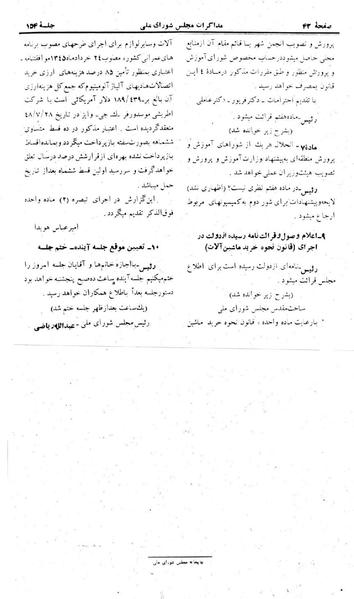 صفحهٔ ۴۳
مذاکرات مجلس شورای ملی
جلسهٔ ۱۵۴
پرورش و تصویب انجمن شهر یا قائم مقام آن از منابع
محلی حاصل میشود در حساب مخصوص شورای آموزش
و پرورش منظور و طبق مقررات مذکور در مادهٔ ۴ این
قانون بمصرف خواهد رسید.
با تقدیم احترامات ـ دکتر فریور ـ دکتر عاملی
رئیس ـ ماده هفتم قرائت میشود.
(بشرح زیر خوانده شد)
ماده۷ـ انحلال هر یک از شوراهای آموزش و
پرورش منطقه‌ای به پیشنهاد وزارت آموزش و پرورش و
تصویب هیئت وزیران عملی خواهد شد.
رئیس ـ در ماده هفتم نظری نیست؟ (اظهاری نشد)
لایحه و پیشنهادات برای شور دوم به کمیسیونهای مربوط
ارجاع میشود.
۹ـ اعلام وصول و قرائت نامه رسیده از دولت در
اجرای (قانون نحوه خرید ماشین آلات)
رئیس ـ نامه‌ای از دولت رسیده است برای اطلاع
مجلس قرائت میشود.
(بشرح زیر خوانده شد)
ساحت مقدس مجلس شورای ملی
با رعایت ماده واحده ، قانون نحوه خرید ماشین
آلات و سایر لوازم برای اجرای طرحهای مصوب برنامه
های عمرانی کشور مصوب ۲۴ خرداد ماه ۱۳۴۵ موافقتنامه
اعتباری بمنظور تأمین ۸۵ درصد هزینه‌های ارزی خرید
اتصالات هادیهای آلیاژ آلومینیوم که جمع کل هزینه ارزی
آن بالغ بر ۱۸۹/۴۳۹ دلار آمریکائی است با شرکت
اطریشی موسدورفر بک جی ـ واین در تاریخ ۴۸/۷/۲۸
منعقد گردیده است . اعتبار مذکور در ده قسط متساوی
ششماهه بصورت سفته بازپرداخت میگردد و بمانده اقساط
بازپرداخت نشده بهره‌ای از قرار شش درصد در سال تعلق
خواهد گرفت و سررسید اولین قسط ششماه بعد از تاریخ
حمل میباشد .
این گزارش در اجرای تبصره (۲) ماده واحده
فوق الذکر تقدیم میگردد .
امیرعباس هویدا
۱۰ـ تعیین موقع جلسه آینده ـ ختم جلسه
رئیس ـ با اجازه خانمها و آقایان جلسه امروز را
ختم میکنیم جلسه آینده ساعت ده صبح پنجشنبه خواهد بود
دستور جلسه بعداً باطلاع همکاران خواهد رسید .
(یک ساعت بعد از ظهر جلسه ختم شد)
رئیس مجلس شورای ملی ـ عبدالله ریاضی
چاپخانه مجلس شورای ملی